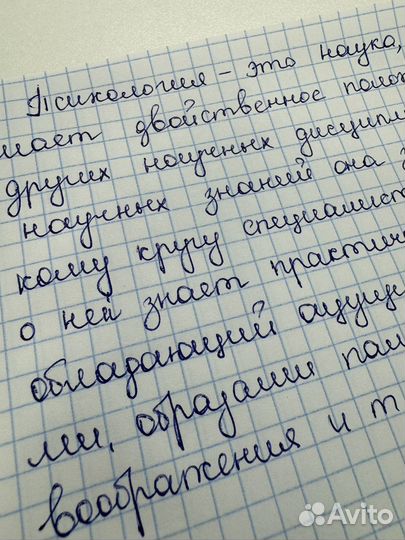 Психология - это наука,
мает двойственное полож
других научных дисципли
научных знаний она з
кому кругу специалист
о ней знает практич
обладающий ощуще
ми, образами пам
воображения и т
Avito